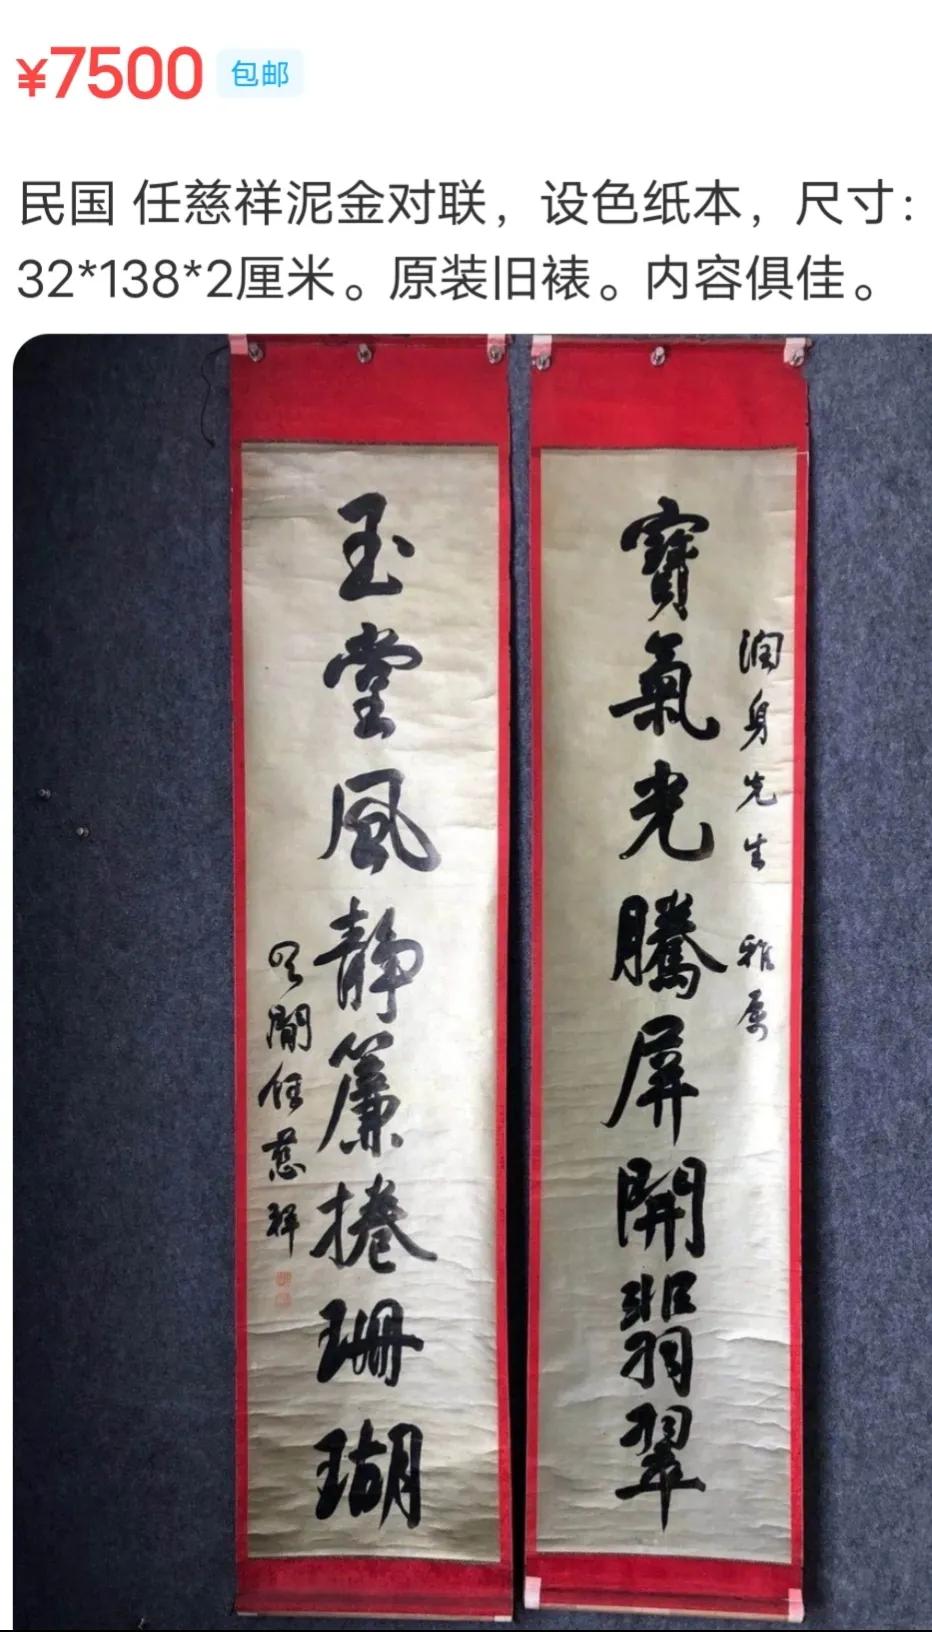 ¥7500 包邮
民国 任慈祥泥金对联，设色纸本，尺寸：
32*138*2厘米。原装旧裱。内容俱佳。
潤身先生 雅属
寶氣光騰屏開翡翠
玉堂風静簾捲珊瑚
閒任慈祥